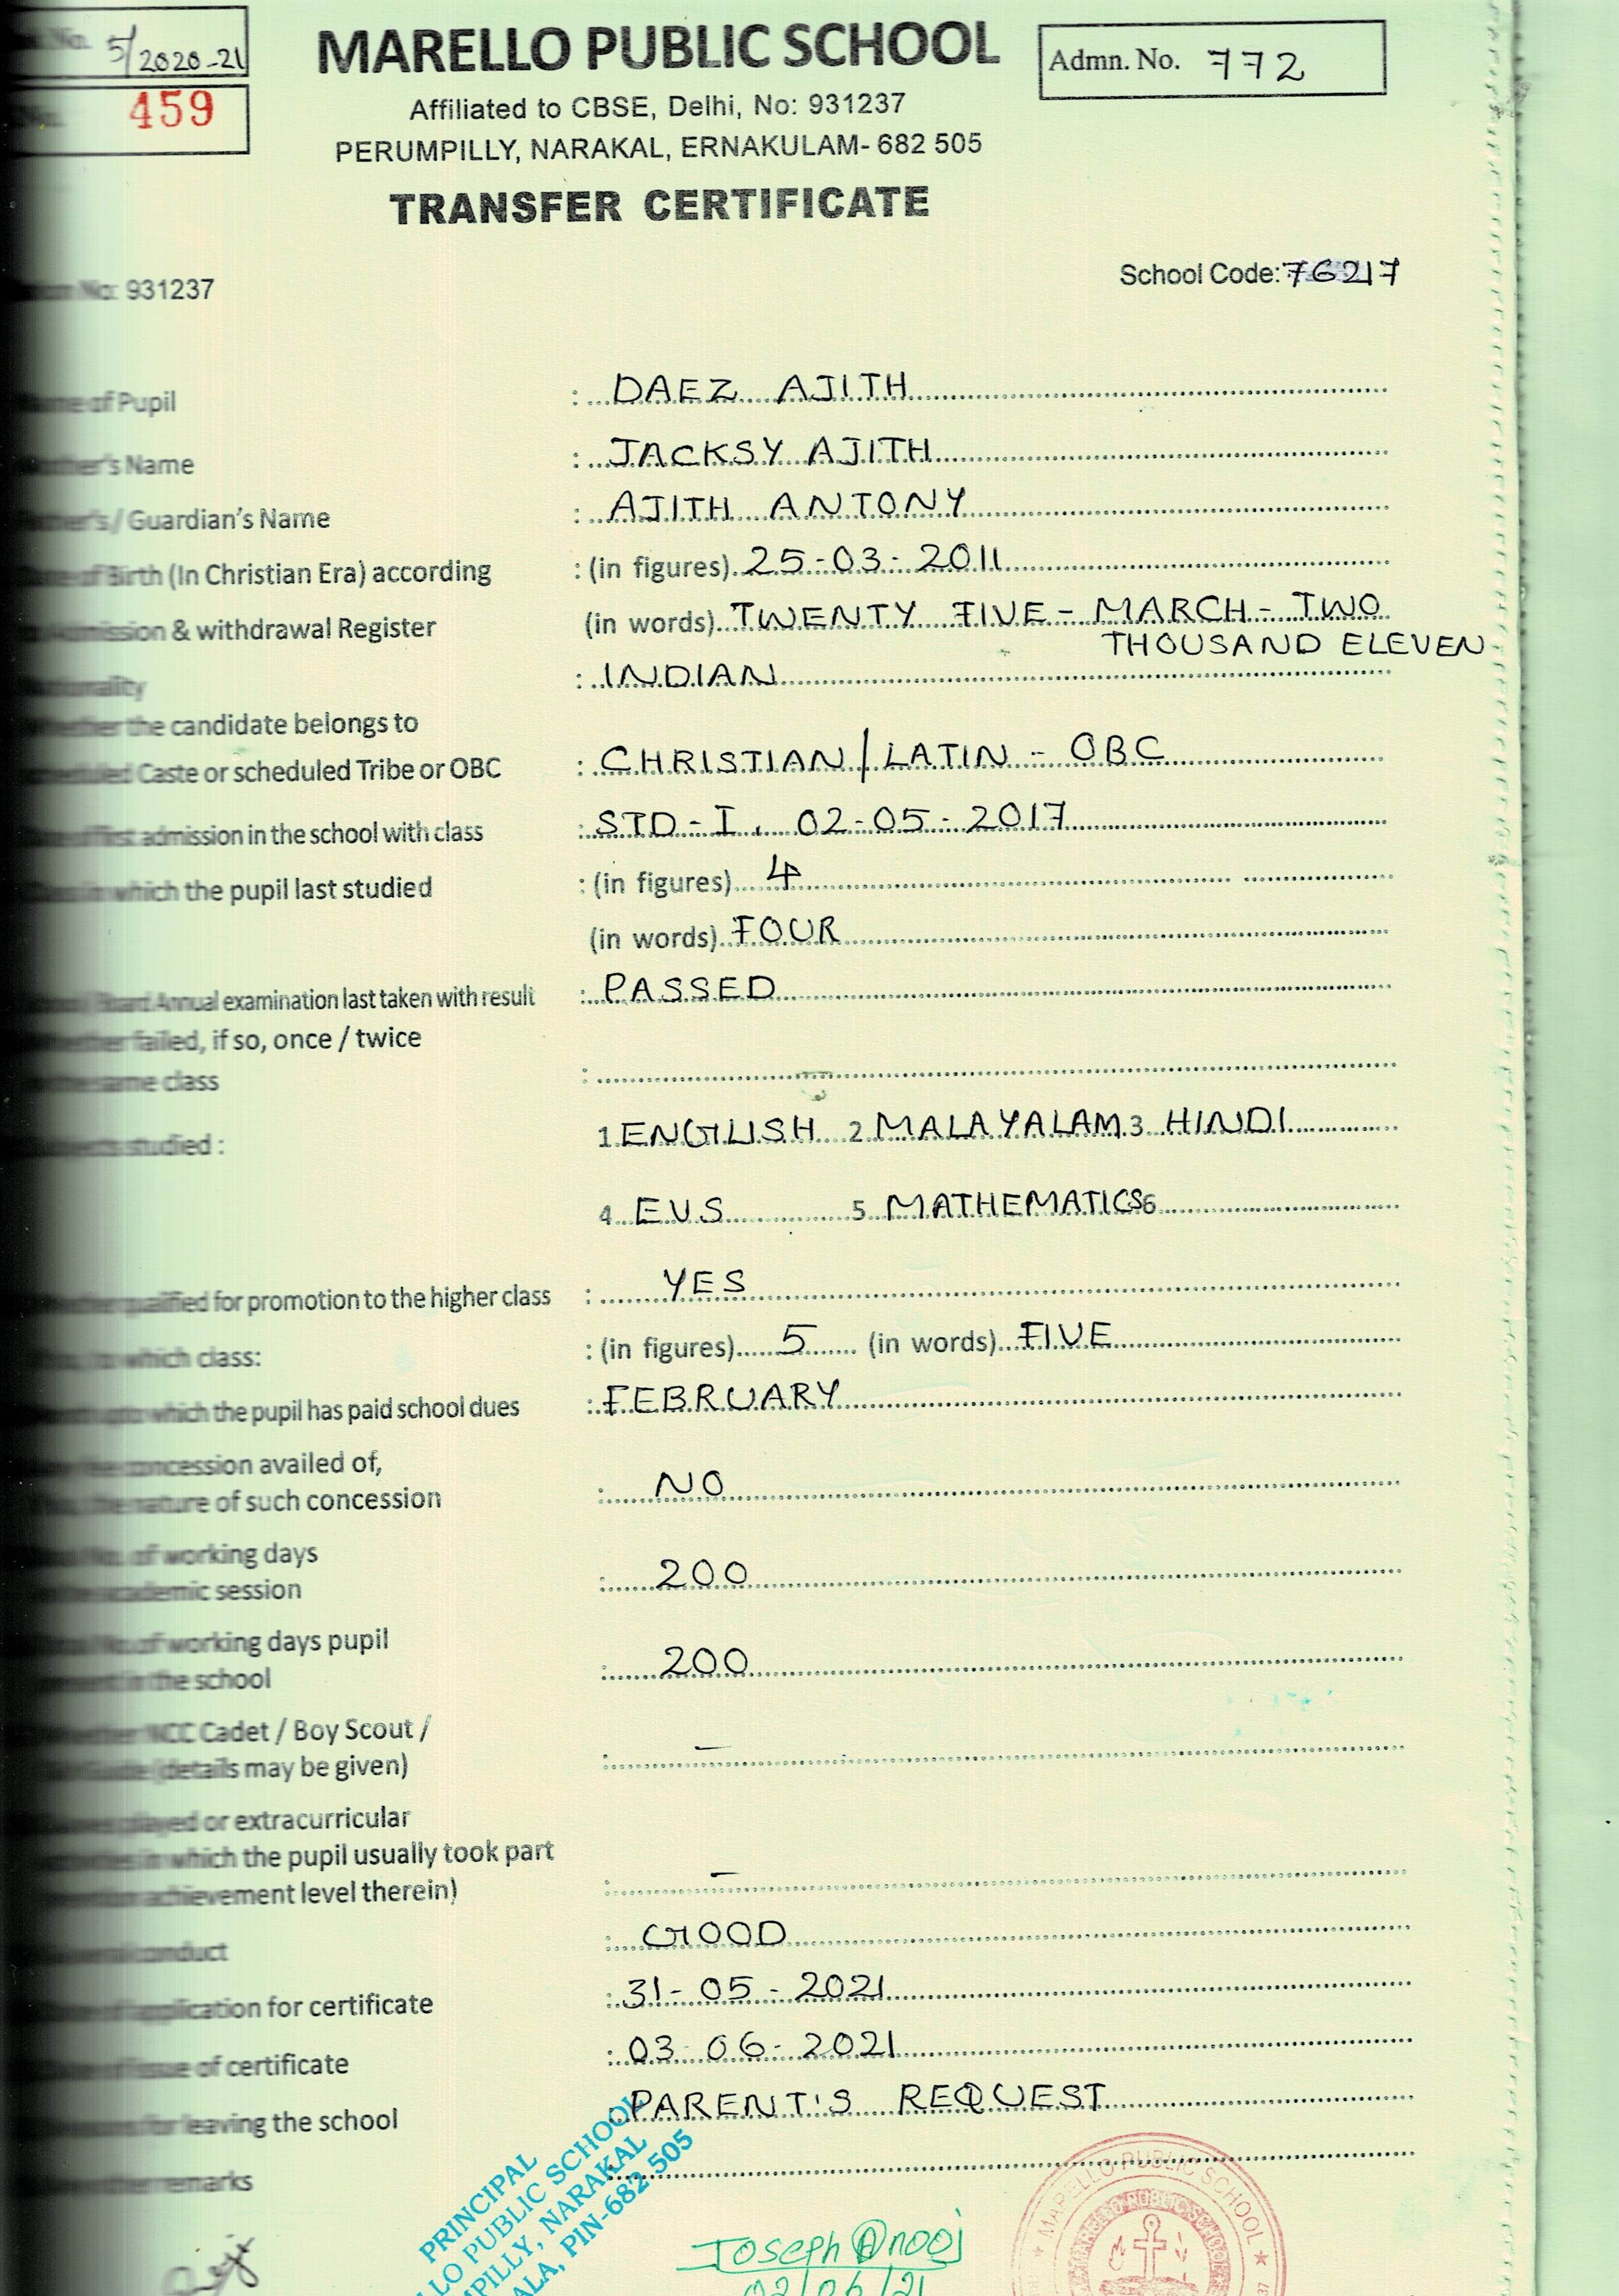 No. 5/2020-21
MARELLO PUBLIC SCHOOL
Admn. No. 772
No. 459
Affiliated to CBSE, Delhi, No: 931237
PERUMPILLY, NARAKAL, ERNAKULAM- 682 505
TRANSFER CERTIFICATE
No: 931237
School Code: 76217
of Pupil : DAEZ AJITH
Name : JACKSY AJITH
/ Guardian's Name : AJITH ANTONY
of Birth (In Christian Era) according : (in figures) 25-03-2011
& withdrawal Register (in words) TWENTY FIVE - MARCH - TWO
THOUSAND ELEVEN
: INDIAN
the candidate belongs to
Caste or scheduled Tribe or OBC : CHRISTIAN/LATIN - OBC
admission in the school with class : STD-I, 02-05-2017
which the pupil last studied : (in figures) 4
(in words) FOUR
Annual examination last taken with result : PASSED
failed, if so, once / twice
same class :
studied : 1 ENGLISH 2 MALAYALAM 3 HINDI
4 EVS 5 MATHEMATICS 6
qualified for promotion to the higher class : YES
which class: : (in figures) 5 (in words) FIVE
which the pupil has paid school dues : FEBRUARY
concession availed of,
nature of such concession : NO
of working days
academic session : 200
of working days pupil
in the school : 200
NCC Cadet / Boy Scout /
(details may be given) : -
played or extracurricular
in which the pupil usually took part
achievement level therein) : -
conduct : GOOD
application for certificate : 31-05-2021
issue of certificate : 03-06-2021
for leaving the school : PARENT'S REQUEST
other remarks
PRINCIPAL
LLO PUBLIC SCHOOL
MPILLY, NARAKAL
ALA, PIN-682 505
Joseph Anooj
02/06/21
MARELLO PUBLIC SCHOOL